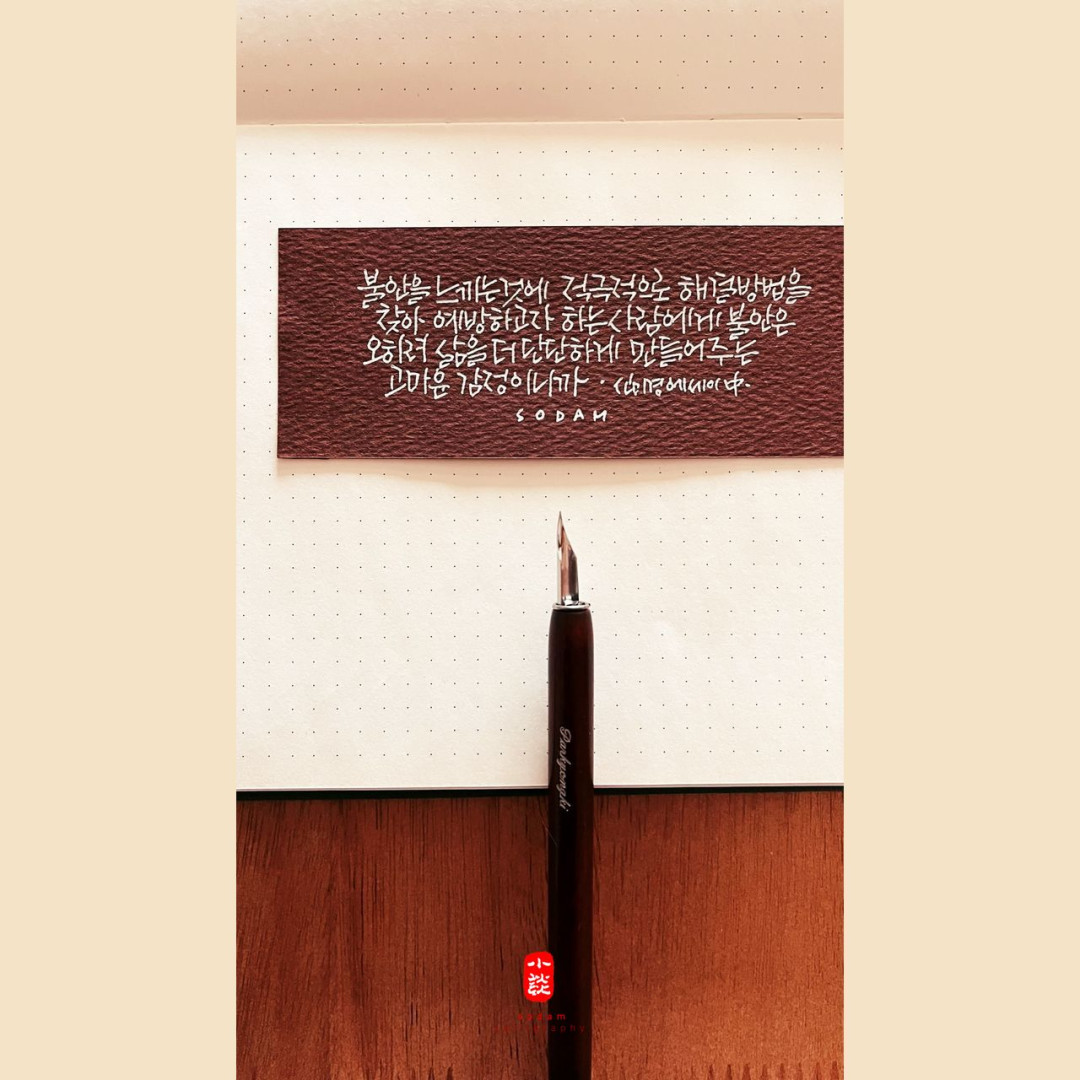 불안을 느끼는것에 적극적으로 해결방법을
찾아 예방하고자 하는 사람에게 불안은
오히려 삶을 더 단단하게 만들어주는
고마운 감정이니까 · 에세이 中.
SODAM
Parkyongki
小談
sodam